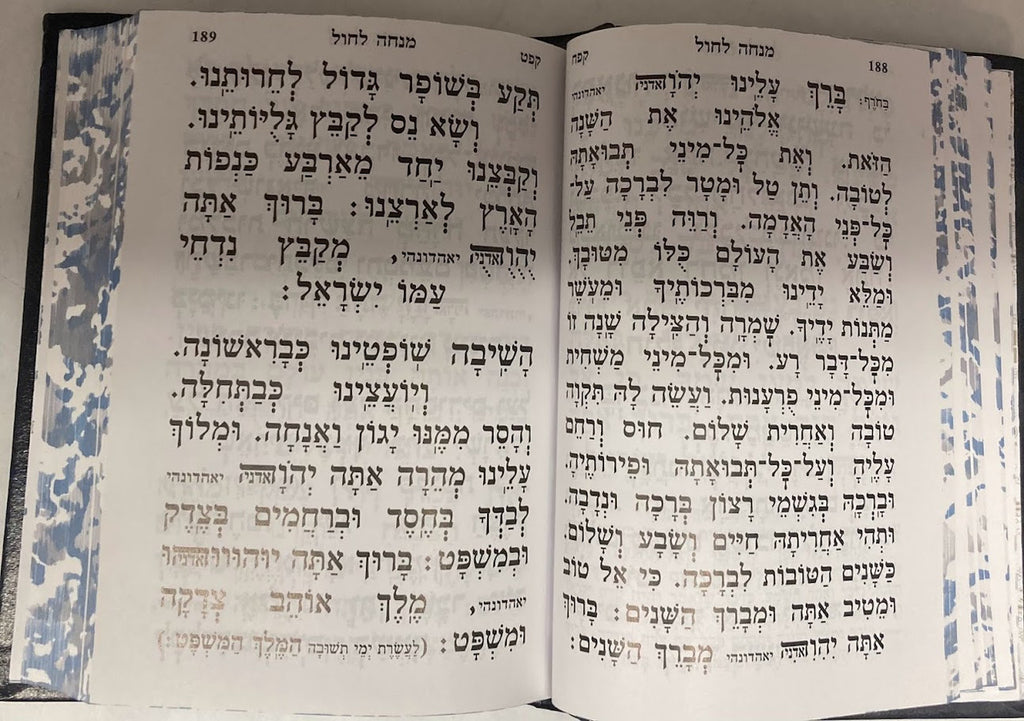 188 מנחה לחול קפח
בחורף: בָּרֵךְ עָלֵינוּ יְהֹוָה אדני יאהדונהי
אֱלֹהֵינוּ אֶת הַשָּׁנָה
הַזֹּאת. וְאֶת כׇּל־מִינֵי תְבוּאָתָהּ
לְטוֹבָה. וְתֵן טַל וּמָטָר לִבְרָכָה עַל־
כׇּל־פְּנֵי הָאֲדָמָה. וְרַוֵּה פְּנֵי תֵבֵל
וְשַׂבַּע אֶת הָעוֹלָם כֻּלּוֹ מִטּוּבָךְ.
וּמַלֵּא יָדֵינוּ מִבִּרְכוֹתֶיךָ וּמֵעֹשֶׁר
מַתְּנוֹת יָדֶיךָ. שׇׁמְרָה וְהַצִּילָה שָׁנָה זוֹ
מִכׇּל־דָּבָר רָע. וּמִכׇּל־מִינֵי מַשְׁחִית
וּמִכׇּל־מִינֵי פֻּרְעָנוּת. וַעֲשֵׂה לָהּ תִּקְוָה
טוֹבָה וְאַחֲרִית שָׁלוֹם. חוּס וְרַחֵם
עָלֶיהָ וְעַל־כׇּל־תְּבוּאָתָהּ וּפֵירוֹתֶיהָ.
וּבָרְכָהּ בְּגִשְׁמֵי רָצוֹן בְּרָכָה וּנְדָבָה.
וּתְהִי אַחֲרִיתָהּ חַיִּים וְשָׂבָע וְשָׁלוֹם.
כַּשָּׁנִים הַטּוֹבוֹת לִבְרָכָה. כִּי אֵל טוֹב
וּמֵטִיב אַתָּה וּמְבָרֵךְ הַשָּׁנִים: בָּרוּךְ
אַתָּה יִהִוִהִ אדני יאהדונהי מְבָרֵךְ הַשָּׁנִים:
קפט מנחה לחול 189
תְּקַע בְּשׁוֹפָר גָּדוֹל לְחֵרוּתֵנוּ.
וְשָׂא נֵס לְקַבֵּץ גָּלֻיּוֹתֵינוּ.
וְקַבְּצֵנוּ יַחַד מֵאַרְבַּע כַּנְפוֹת
הָאָרֶץ לְאַרְצֵנוּ: בָּרוּךְ אַתָּה
יֻהֻוֻהֻ אדני יאהדונהי, מְקַבֵּץ נִדְחֵי
עַמּוֹ יִשְׂרָאֵל:
הָשִׁיבָה שׁוֹפְטֵינוּ כְּבָרִאשׁוֹנָה.
וְיוֹעֲצֵינוּ כְּבַתְּחִלָּה.
וְהָסֵר מִמֶּנּוּ יָגוֹן וַאֲנָחָה. וּמְלוֹךְ
עָלֵינוּ מְהֵרָה אַתָּה יְהֹוָה אדני יאהדונהי
לְבַדְּךָ בְּחֶסֶד וּבְרַחֲמִים בְּצֶדֶק
וּבְמִשְׁפָּט: בָּרוּךְ אַתָּה
יאהדונהי, מֶלֶךְ אוֹהֵב צְדָקָה
וּמִשְׁפָּט: (לַעֲשֶׂרֶת יְמֵי תְשׁוּבָה הַמֶּלֶךְ הַמִּשְׁפָּט:)